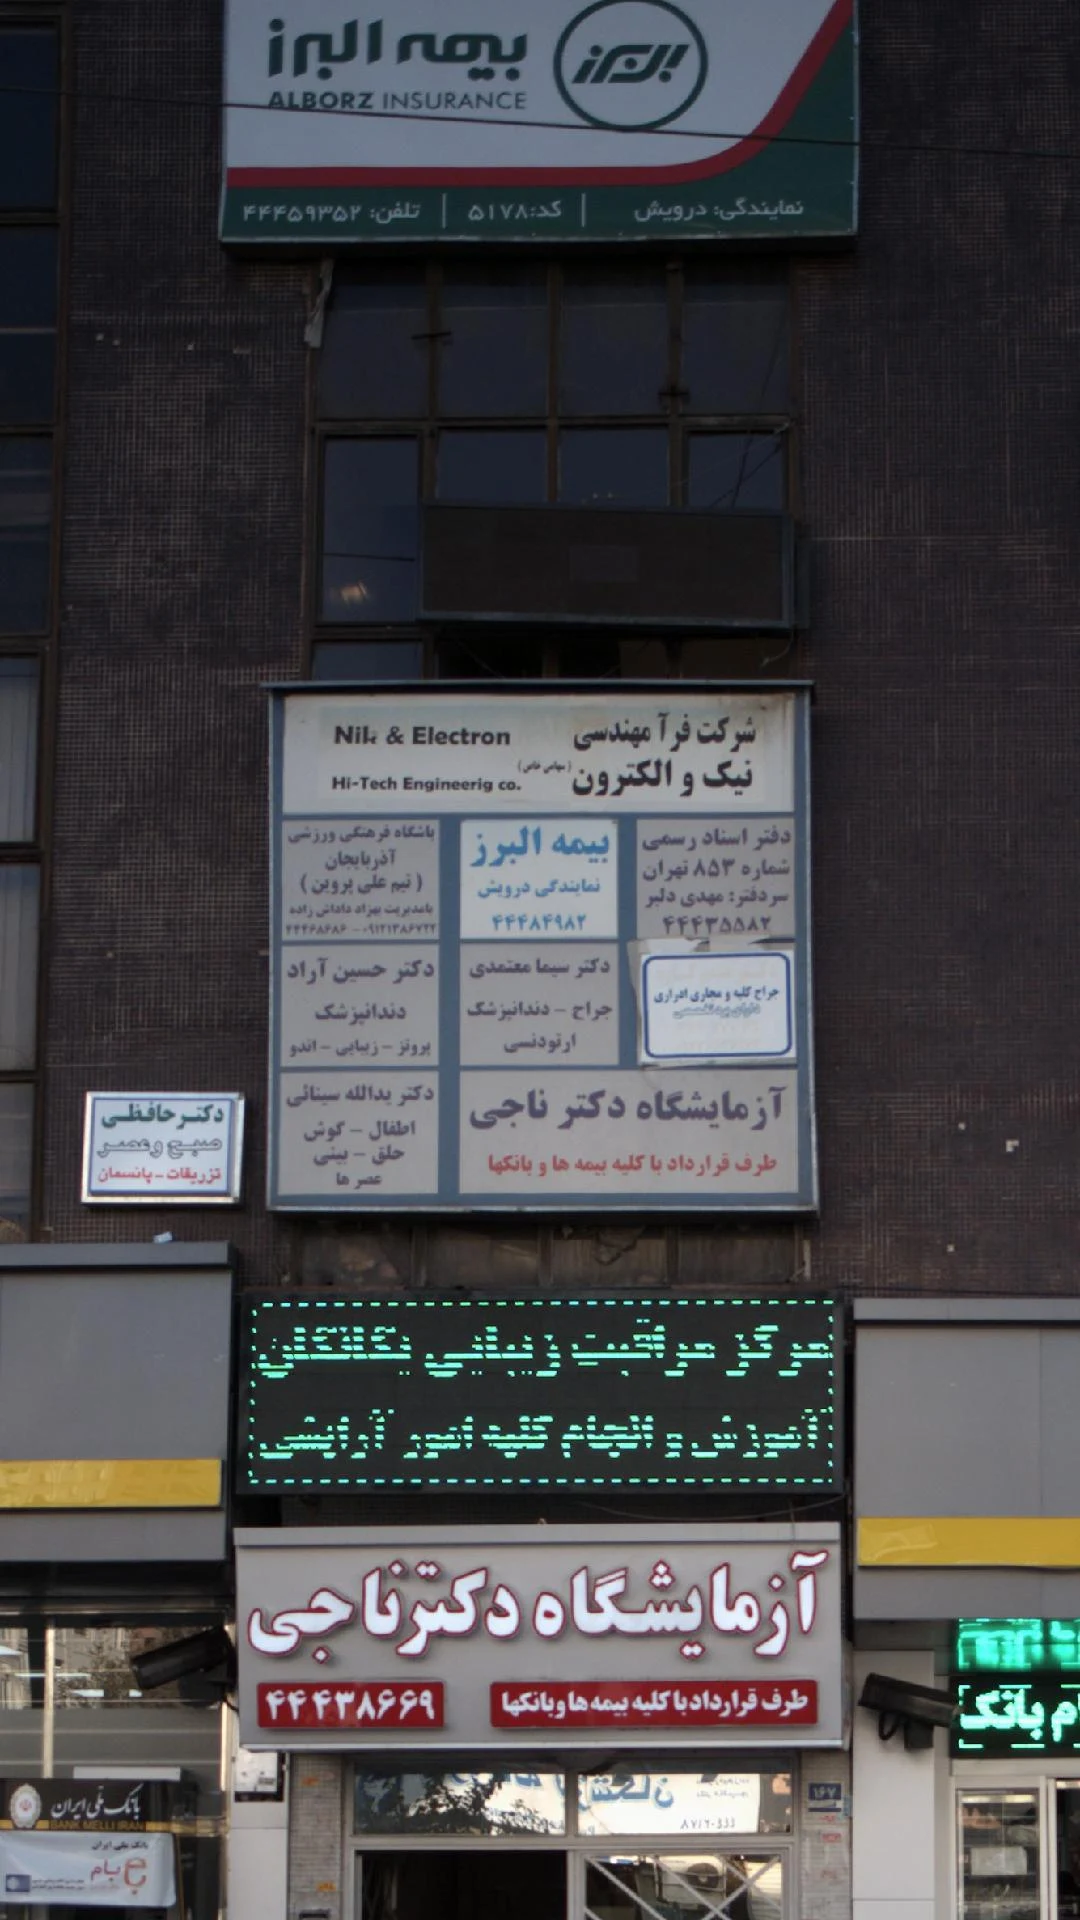 بیمه البرز
البرز
ALBORZ INSURANCE
نمایندگی: درویش | کد: ۵۱۷۸ | تلفن: ۴۴۴۵۹۳۵۲
شرکت فرآ مهندسی
نیک و الکترون (سهامی خاص)
Nik & Electron
Hi-Tech Engineerig co.
دفتر اسناد رسمی
شماره ۸۵۳ تهران
سردفتر: مهدی دلبر
۴۴۴۳۵۵۸۲
بیمه البرز
نمایندگی درویش
۴۴۴۸۴۹۸۲
باشگاه فرهنگی ورزشی
آذربایجان
( تیم علی پروین )
بامدیریت بهزاد داداش زاده
۰۹۱۲۱۳۸۶۷۲۲ - ۴۴۴۶۸۶۸۶
جراح کلیه و مجاری ادراری
دارای بورد تخصصی
دکتر سیما معتمدی
جراح - دندانپزشک
ارتودنسی
دکتر حسین آراد
دندانپزشک
پروتز - زیبایی - اندو
آزمایشگاه دکتر ناجی
طرف قرارداد با کلیه بیمه ها و بانکها
دکتر یدالله سینائی
اطفال - گوش
حلق - بینی
عصر ها
دکتر حافظی
صبح و عصر
تزریقات - پانسمان
مرکز مراقبت زیبایی
آموزش و انجام کلیه امور آرایشی
آزمایشگاه دکتر ناجی
طرف قرارداد با کلیه بیمه ها و بانکها
۴۴۴۳۸۶۶۹
م بانک
۱۶۷
بانک ملی ایران
BANK MELLI IRAN
بانک ملی ایران
بام